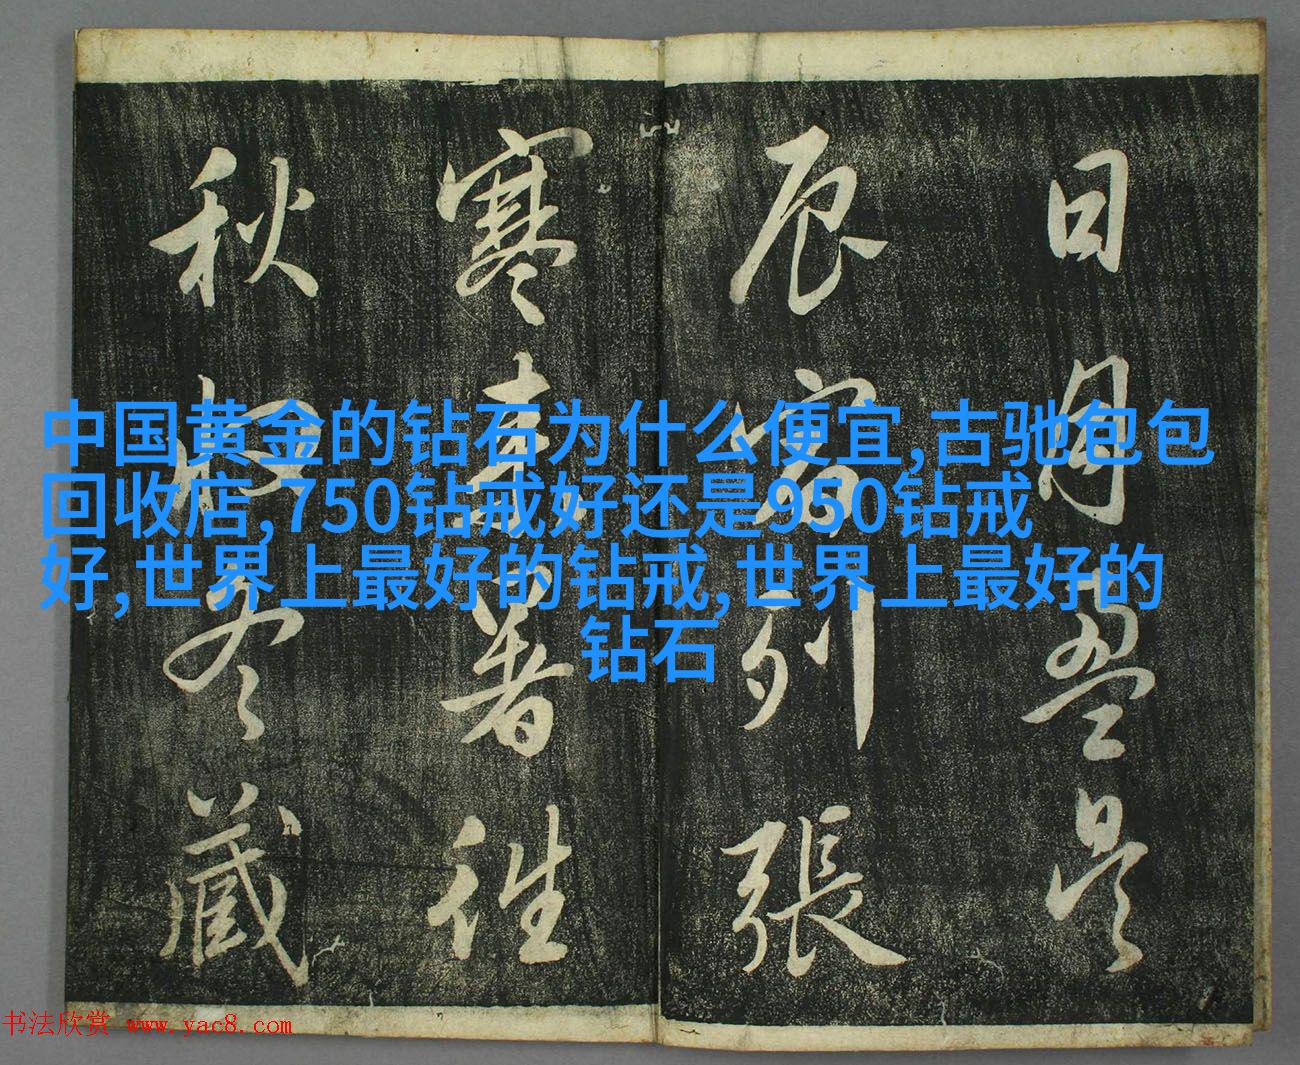 日月盈昃
辰宿列張
寒來暑往
秋收冬藏
中国黄金的钻石为什么便宜,古驰包包
回收店,750钻戒好还是950钻戒
好,世界上最好的钻戒,世界上最好的
钻石
书法欣赏 www.yac8.com